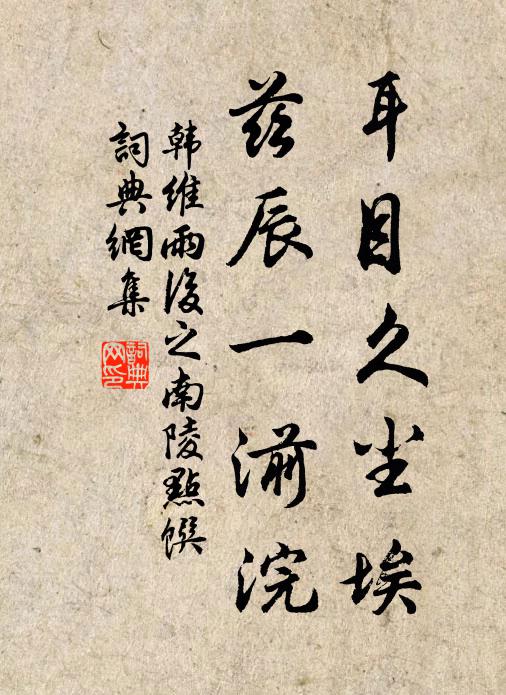 耳目久尘埃
兹辰一湔浣
韩维雨后之南陵点馔
词典网集
词典网印